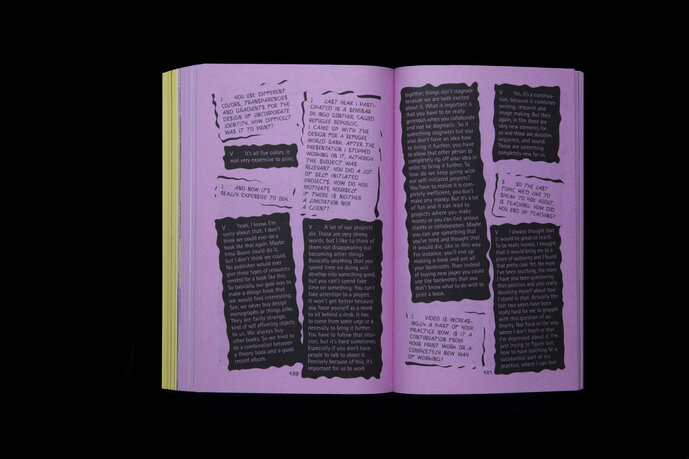 I YOU USE DIFFERENT
COLORS, TRANSPARENCIES
AND GRADIENTS FOR THE
DESIGN OF UNCORPORATE
IDENTITY. HOW DIFFICULT
WAS IT TO PRINT?
V It's all five colors, it
was very expensive to print.
I AND NOW IT'S
REALLY EXPENSIVE TO BUY.
V Yeah, I know. I'm
sorry about that. I don't
think we could ever do a
book like that again. Maybe
Irma Boom could do it,
but I don't think we could.
No publisher would ever
give those types of resources
needed for a book like this.
So basically, our goal was to
make a design book that
we would find interesting.
See, we never buy design
monographs or things alike.
They are fairly strange,
kind of self affirming objects
to us. We always buy
other books. So we tried to
do a combination between
a theory book and a good
record album.
I LAST YEAR I PARTI-
CIPATED IN A SEMINAR
BY INGO GÜNTHER, CALLED
REFUGEE REPUBLIC.
I CAME UP WITH THE
DESIGN FOR A REFUGEE
WORLD BANK. AFTER THE
PRESENTATION I STOPPED
WORKING ON IT, ALTHOUGH
THE SUBJECT WAS
RELEVANT. YOU DO A LOT
OF SELF INITIATED
PROJECTS. HOW DO YOU
MOTIVATE YOURSELF
IF THERE IS NEITHER
A LIMITATION NOR
A CLIENT?
V A lot of our projects
die. Those are very strong
words, but I like to think of
them not disappearing but
becoming other things.
Basically anything that you
spend time on doing will
develop into something good,
but you can't spend fake
time on something. You can't
fake attention to a project.
It won't get better because
you force yourself as a monk
to sit behind a desk. It has
to come from some urge or a
necessity to bring it further.
You have to follow that intui-
tion, but it's hard sometimes.
Especially if you don't have
people to talk to about it.
Precisely because of this, it's
important for us to work
together, things don't stagnate
because we are both excited
about it. What is important is
that you have to be really
generous when you collaborate
and not be dogmatic. So if
something stagnates but you
also don't have an idea how
to bring it further, you have
to allow that other person to
completely rip off your idea in
order to bring it further. So
how do we keep going with
our self-initiated projects?
You have to realize it is com-
pletely inefficient, you don't
make any money. But it's a lot
of fun and it can lead to
projects where you make
money or you can find serious
clients or collaborators. Maybe
you can use something that
you've tried and thought that
it would die, like in this way
For instance, you'll end up
making a book and use all
your banknotes. Then instead
of buying new paper you could
use the banknotes that you
don't know what to do with to
print a book.
I VIDEO IS INCREAS-
INGLY A PART OF YOUR
PRACTICE NOW. IS IT A
CONTINUATION FROM
YOUR PRINT WORK OR A
COMPLETELY NEW WAY
OF WORKING?
V Yes, it's a continua-
tion, because it combines
writing, research and
image making. But then
again, in film there are
very new elements for
us and those are duration,
sequence, and sound
Those are something
completely new for us.
I SO THE LAST
TOPIC WE'D LIKE TO
SPEAK TO YOU ABOUT,
IS TEACHING. HOW DID
YOU END UP TEACHING?
V I always thought that
it would be great to teach.
To be really honest, I thought
that it would bring me to a
place of authority and I found
that pretty cool. Yet, the more
I've been teaching, the more
I have also been questioning
that position and also really
doubting myself about how
I stand in that. Actually the
last two years have been
really hard for me to grapple
with this question of au-
thority. Not hard in the way
where I don't teach or that
I'm depressed about it. I'm
just trying to figure out,
how to have teaching be a
substantial part of my
practice, where I can feel